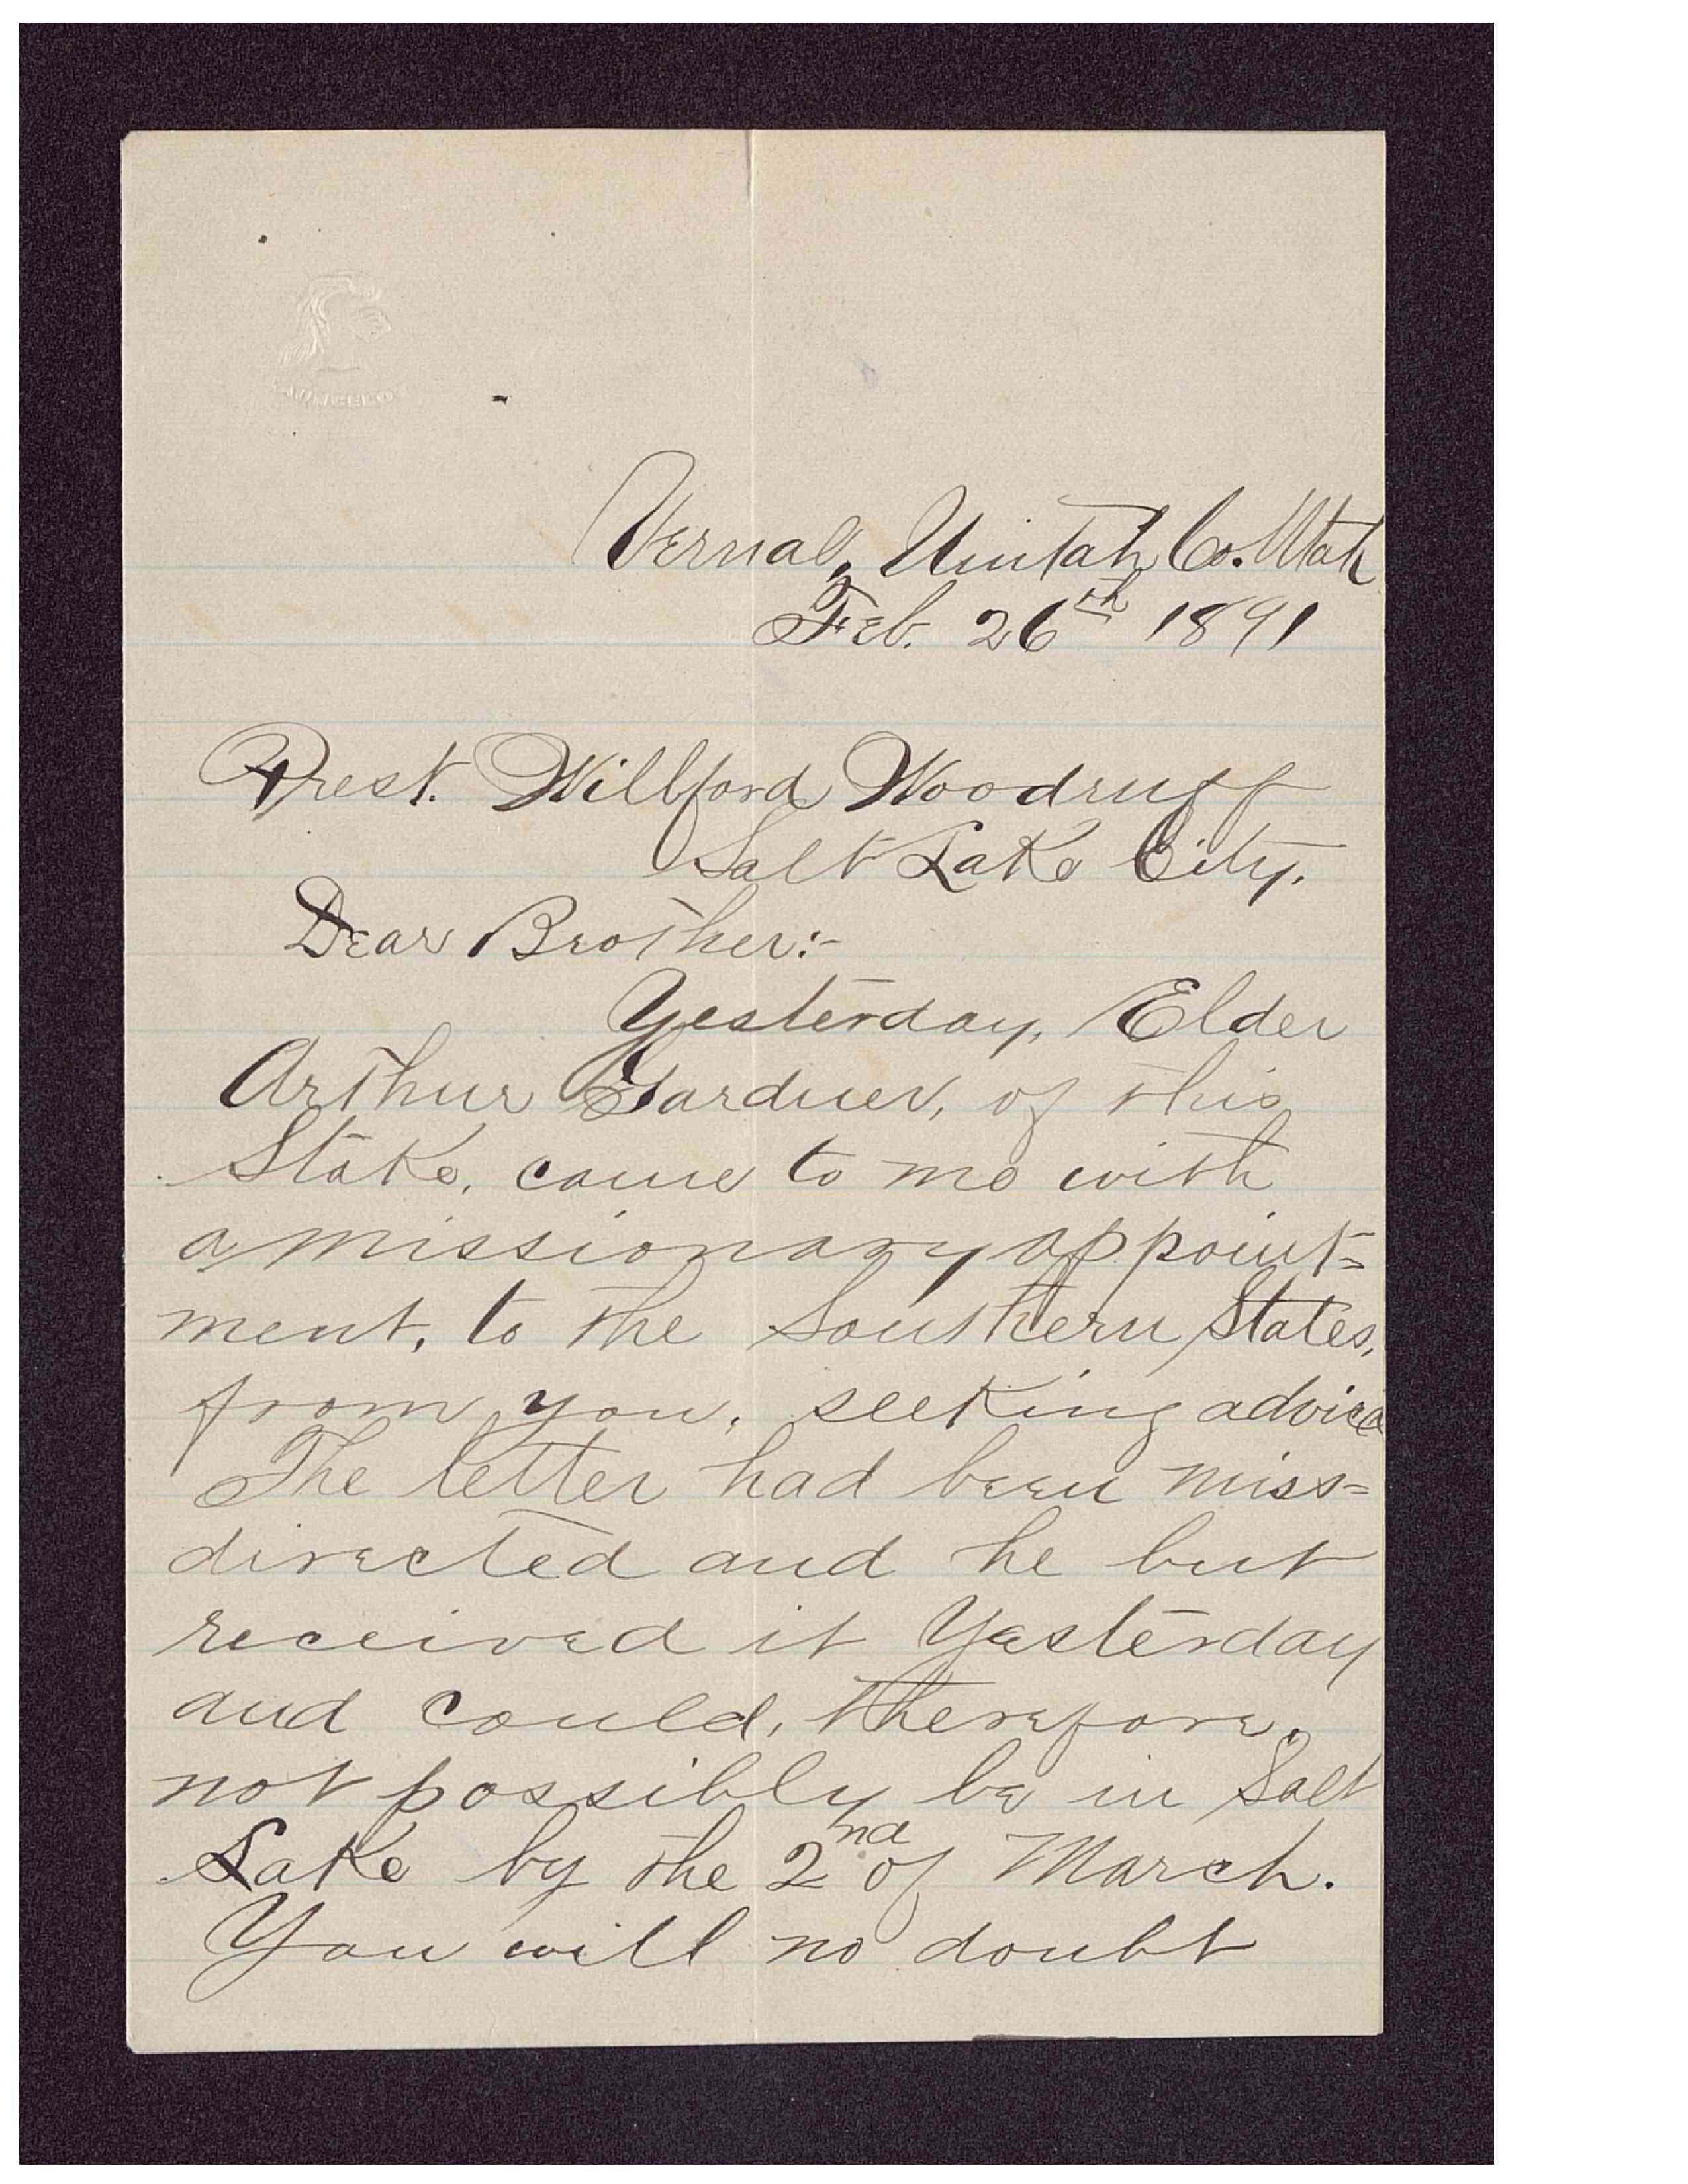 Vernal, Uintah Co. Utah
Feb. 26th 1891
Prest. Willford Woodruff
Salt Lake City.
Dear Brother:-
Yesterday, Elder
Arthur Gardner, of this
Stake, came to me with
a missionary appoint=
ment, to the Southern States,
from you, seeking advice
The letter had been miss=
directed and he but
received it Yesterday
and could, therefore,
not possibly be in Salt
Lake by the 2nd of March.
You will no doubt